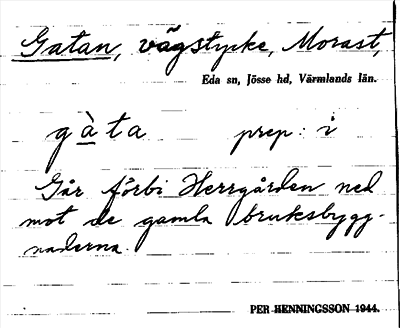 Gatan, vägstycke, Morast,
Eda sn, Jösse hd, Värmlands län.
gàta prep: i
Går förbi Herrgården ned
mot de gamla bruksbygg-
naderna.
PER HENNINGSSON 1944.